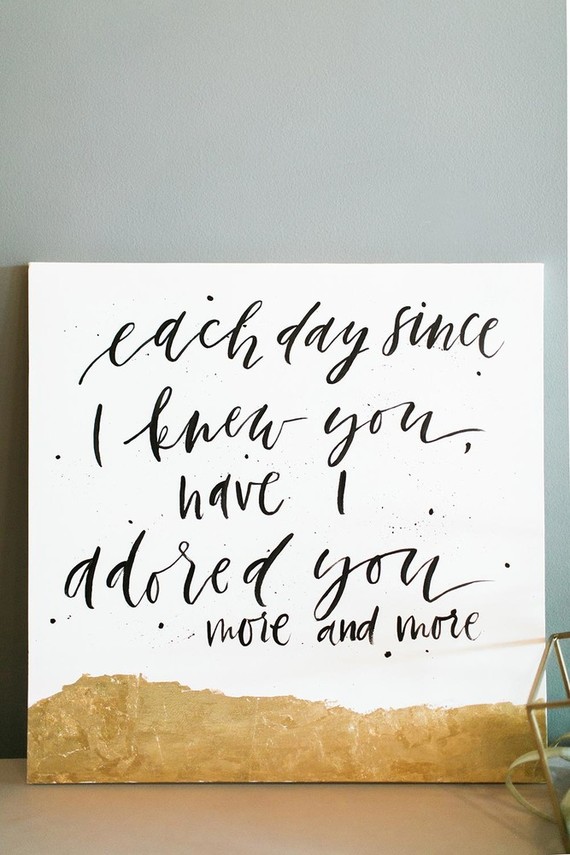 each day since
I knew you,
have I
adored you
more and more